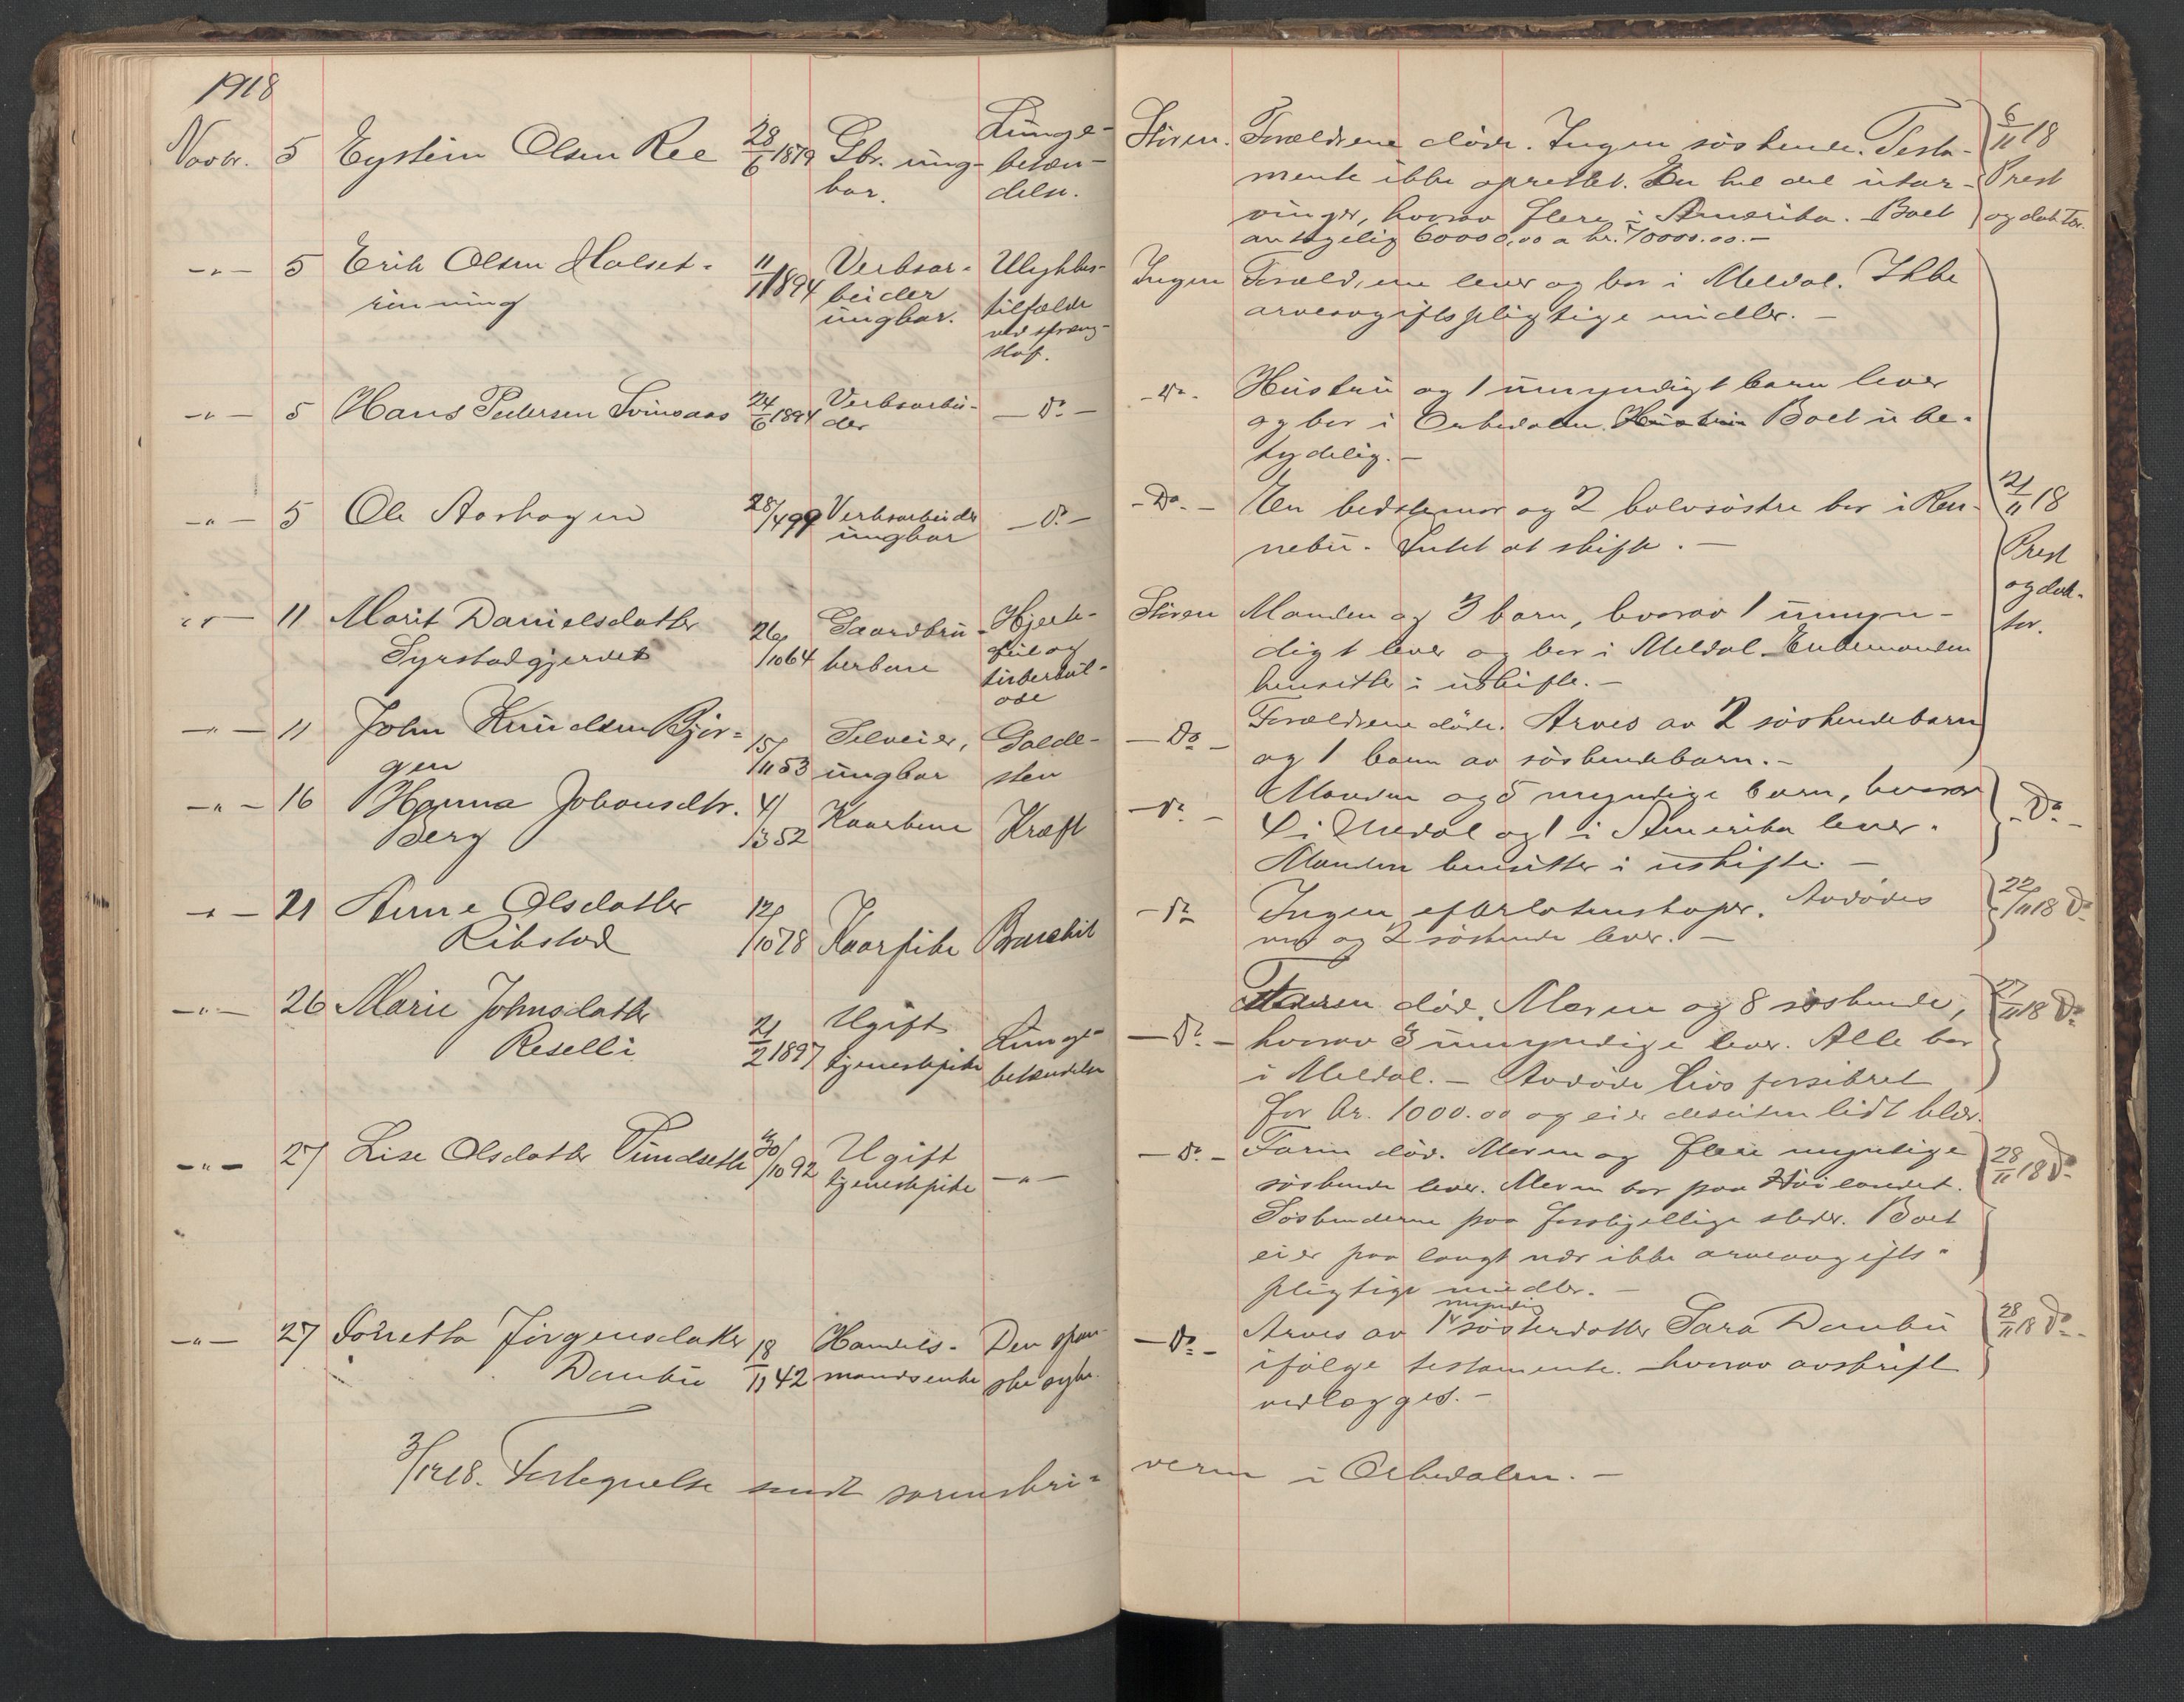 1918
Novbr. 5 Eystein Olsen Ree 28/6 1879 Gbr. ung- Lunge-
kar. betæn-
delse.
Støren. Forældrene døde. Ingen søskende. Testa-
mente ikke oprettet. En hel del utar-
vinger, hvorav flere i Amerika. Boet
antagelig 60000,00 a kr. 70000.00.-
6/11 18
Prest
og doktor.
-"- 5 Erik Olsen Halset- 11/11 1894 Verksar- Ulykkes-
rønning beider tilfælde
ungkar. ved spræng-
stof.
Ingen Forældrene lever og bor i Meldal. Ikke
arveavgiftspligtige midler. -
-"- 5 Hans Pedersen Svinsaas 24/6 1894 Verksarbei- - Do -
der
- Do - Hustru og 1 umyndigt barn lever
og bor i Orkedalen. Hustru Boet ube-
tydelig. -
-"- 5 Ole Aoshagen 28/4 99 Verksarbeider - Do -
ungkar
- Do - En bedstemor og 2 halvsøstre bor i Ren-
nebu. Intet at skifte. -
21/11 18
Prest
og dok-
tor.
-"- 11 Marit Danielsdatter 26/10 64 Gaardbru- Hjerte-
Syrstadgjerdet kerkone feil og
tuberkul-
ose
Støren Manden og 3 barn, hvorav 1 umyn-
digt lever og bor i Meldal. Enkemanden
hensitter i uskifte. -
-"- 11 John Knudsen Bjør- 15/11 53 Selveier, Galde-
gen ungkar sten
- Do - Forældrene døde. Arves av 2 søskendebarn
og 1 barn av søskendebarn. -
-"- 16 Hanna Johansdtr. 4/3 52 Kaarkone Kræft
Berg
- Do - Manden og 5 myndige barn, hvorav
4 i Meldal og 1 i Amerika lever.
Manden hensitter i uskifte. -
- Do -
-"- 21 Anne Olsdatter 12/10 78 Kaarpike Bronchit
Rikstad
- Do Ingen efterlatenskaper. Avdødes
mor og 2 søskende lever. -
22/11 18 Do
-"- 26 Marie Johnsdatter 21/2 1897 Ugift Lunge-
Reselli tjenestepike betændelse
- Do - Faren død. Moren og 8 søskende,
hvorav 3 umyndige lever. Alle bor
i Meldal. - Avdøde livsforsikret
for kr. 1000.00 og eier desuten lidt klær.
27/11 18 Do
-"- 27 Lise Olsdatter Vindsetl 30/10 92 Ugift -"-
tjenestepike
- Do - Faren død. Moren og flere myndige
søskende lever. Moren bor paa Høilandet.
Søskenderne paa forskjellige steder. Boet
eier paa langt nær ikke arveavgifts-
pligtige midler. -
28/11 18 Do
-"- 27 Jørgensdatter 18/11 42 Handels- Den span-
Danbu mandsenke ske syke.
- Do - Arves av 1 myndig søsterdatter Sara Danbu
ifølge testamente. hvorav avskrift
vedlægges. -
28/11 18 Do -
3/12 18. Fortegnelse sendt sorenskri-
veren i Orkedalen. -